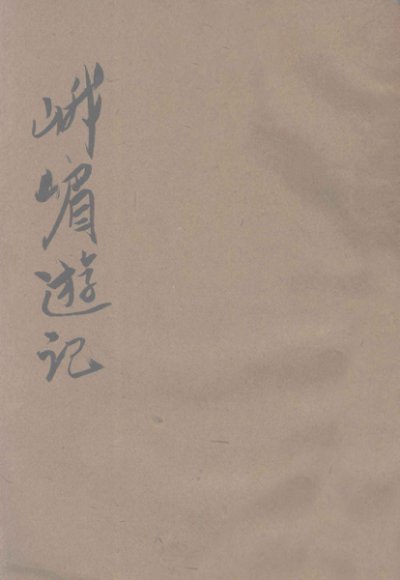 峨嵋遊記